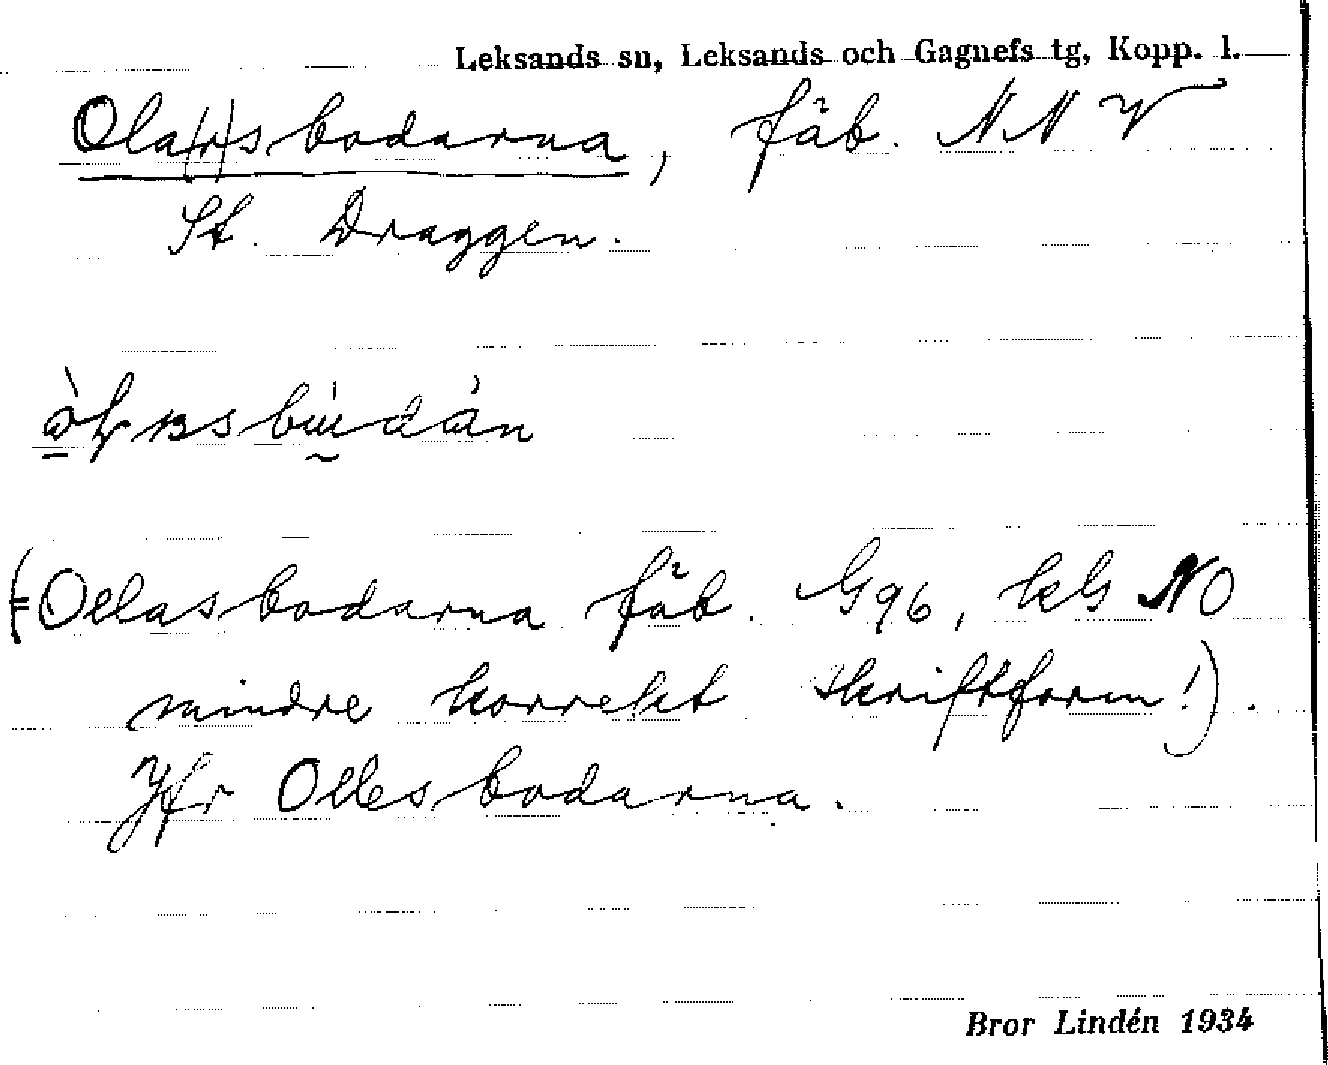 Leksands sn, Leksands och Gagnefs tg, Kopp. l.
Ola(r)sbodarna, fäb. NNV
St. Draggen.
(=Ollasbodarna fäb. G96, kG NO
mindre korrekt skriftform!).
Jfr Ollesbodarna.
Bror Lindén 1934